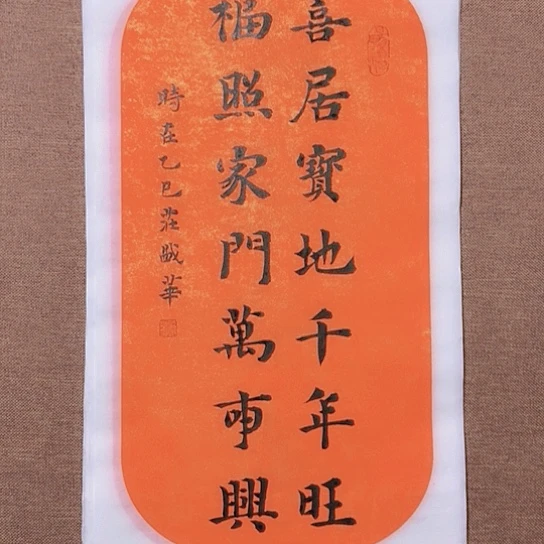 喜居寶地千年旺
福照家門萬事興
時在乙巳莊戚華